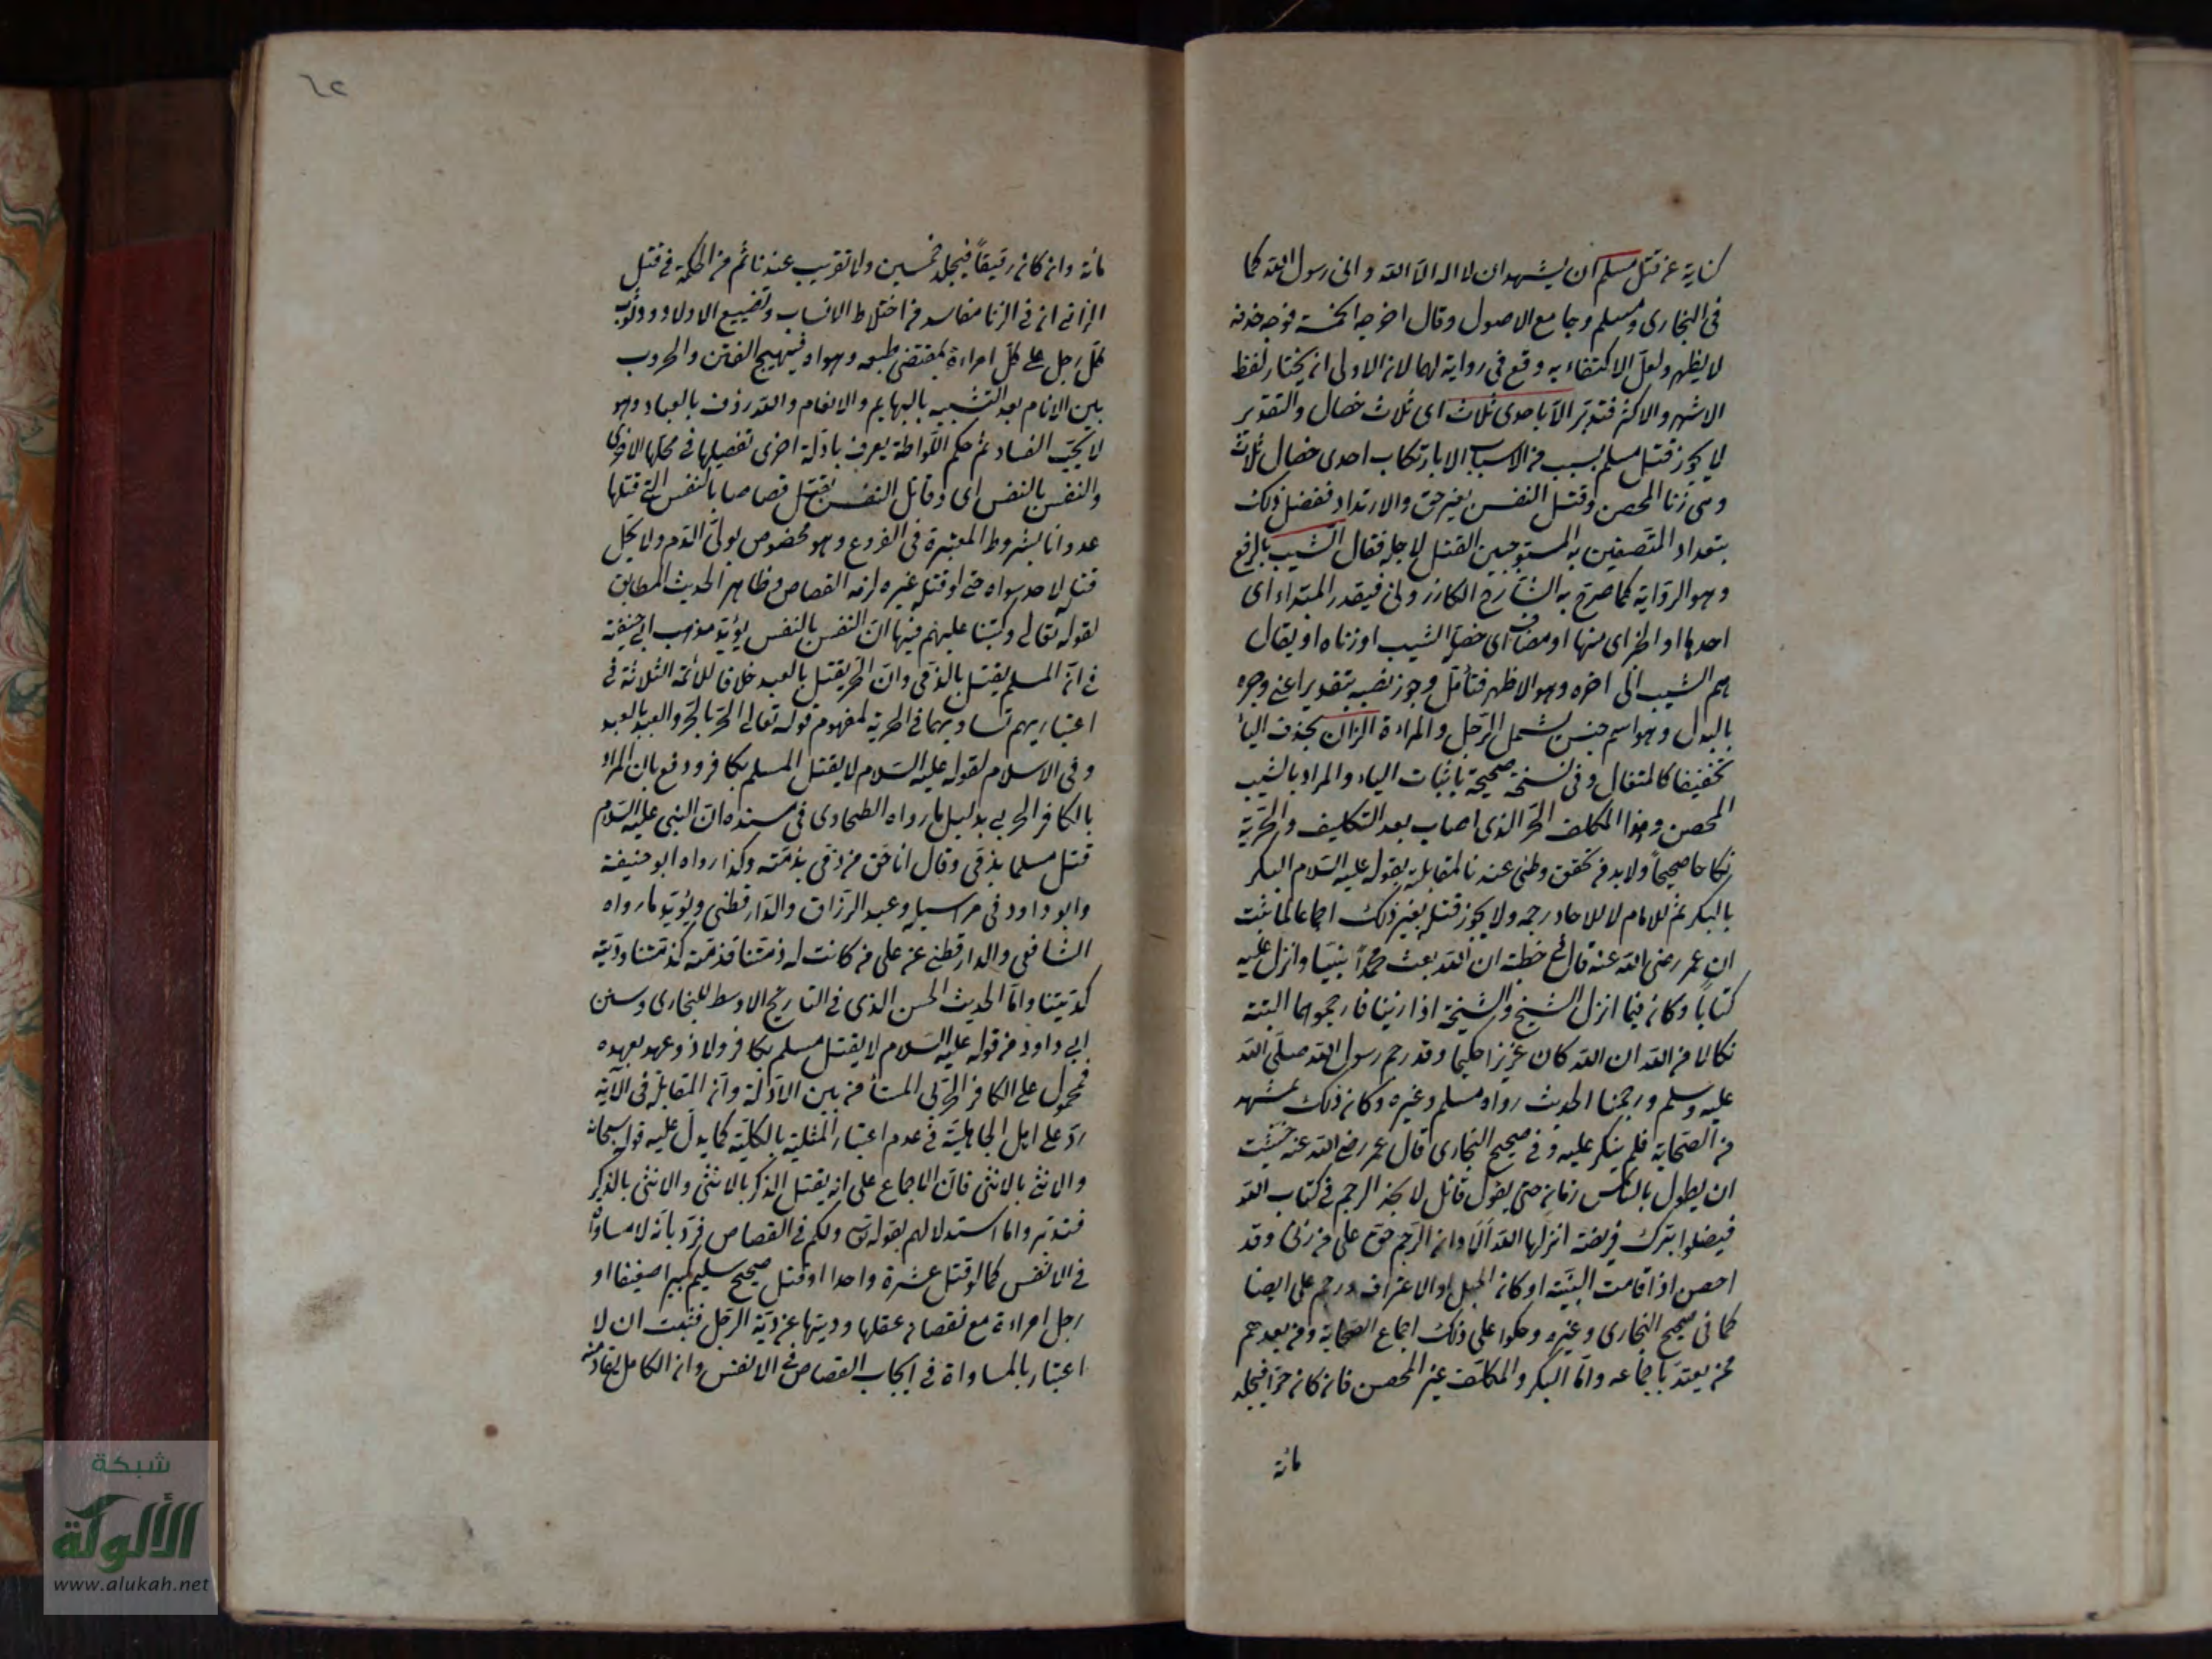 كناية عن قتل مسلم ان يشهد ان لا اله الا الله واني رسول الله كما
في البخاري ومسلم وجامع الاصول وقال اخرجه الخمسة فوجه حذفه
لا يظهر ولعل الاكتفاء به وقع في رواية لهما لان الاولى ان يختار لفظ
الاشهر والاكثر فتدبر الا باحدى ثلاث اى ثلاث خصال والتقدير
لا يجوز قتل مسلم بسبب من الاسباب الا بارتكاب احدى خصال ثلاث
وهي زنا المحصن وقتل النفس بغير حق والارتداد ففصل ذلك
بتعداد المتصفين به المستوجبين القتل لاجله فقال الثيب بالرفع
وهو الرواية كما صرح به الشارح الكازروني فيقدر المبتداء اى
احدها او الخبر اى منها او مضاف اى خصلة الثيب او زناه او يقال
هم الثيب الى اخره وهو الاظهر فتأمل وجوز نصبه بتقدير اعني وجره
بالبدل وهو اسم جنس يشمل الرجل والمراءة الزان بحذف الياء
تخفيفا كالمتعال وفي نسخة صحيحة باثبات الياء والمراد بالثيب
المحصن وهو المكلف الحر الذى اصاب بعد التكليف والحرية
نكاحا صحيحا ولابد من تحقق وطئ عندنا لمقابلته بقوله عليه السلام البكر
بالبكر ثم للامام لا للاحاد رجمه ولا يجوز قتله بغير ذلك اجماعا لما ثبت
ان عمر رضي الله عنه قال في خطبته ان الله بعث محمداً نبيا وانزل عليه
كتابا وكان فيما انزل الشيخ والشيخة اذا زنيا فارجموهما البتة
نكالا من الله ان الله كان عزيزا حكيما وقد رجم رسول الله صلى الله
عليه وسلم ورجمنا الحديث رواه مسلم وغيره وكان ذلك بمشهد
من الصحابة فلم ينكر عليه وفي صحيح البخاري قال عمر رضي الله عنه خشيت
ان يطول بالناس زمان حتى يقول قائل لا نجد الرجم في كتاب الله
فيضلوا بترك فريضة انزلها الله الا وان الرجم حق على من زنى وقد
احصن اذا قامت البينة او كان الحبل او الاعتراف ورجم علي ايضا
كما في صحيح البخاري وغيره وحكوا على ذلك اجماع الصحابة ومن بعدهم
ممن يعتد باجماعه واما البكر والمكلف غير المحصن فان كان حرا فيجلد
مائة
مائة وان كان رقيقاً فيجلد خمسين ولا تغريب عندنا ثم من الحكمة في قتل
الزاني ان في الزنا مفاسد من اختلاط الانساب وتضييع الاولاد ووثوب
كل رجل على كل امراءة بمقتضى طبعه وهواه فيهيج الفتن والحروب
بين الانام بعد التشبيه بالبهايم والانعام والله رؤف بالعباد وهو
لا يحب الفساد ثم حكم اللواطة يعرف بادلة اخرى تفصيلها في محلها الاحرى
والنفس بالنفس اى وقاتل النفس يقتل قصاصا بالنفس التي قتلها
عدوانا بشروط المعتبرة في الفروع وهو مخصوص بولى الدم ولا يحل
قتله لاحد سواه حتى لو قتله غيره لزمه القصاص وظاهر الحديث المطابق
لقوله تعالى وكتبنا عليهم فيها ان النفس بالنفس يؤيد مذهب ابي حنيفة
في ان المسلم يقتل بالذمي وان الحر يقتل بالعبد خلافا للائمة الثلاثة في
اعتباريهم تساويهما في الحرية لمفهوم قوله تعالى الحر بالحر والعبد بالعبد
وفي الاسلام لقوله عليه السلام لا يقتل المسلم بكافر ودفع بان المراد
بالكافر الحربي بدليل ما رواه الطحاوى في مسنده ان النبي عليه السلام
قتل مسلما بذمي وقال انا احق من وفى بذمته وكذا رواه ابو حنيفة
وابو داود في مراسيله وعبد الرزاق والدارقطني ويؤيد ما رواه
الشافعي والدارقطني عن علي من كانت له ذمتنا فذمته كذمتنا وديته
كديتنا واما الحديث الحسن الذى في التاريخ الاوسط للبخارى وسنن
ابي داود من قوله عليه السلام لا يقتل مسلم بكافر ولا ذو عهد بعهده
فمحمول على الكافر الحربي المستأمن بين الادلة وان المقابلة في الآية
رد على اهل الجاهلية في عدم اعتبار المثلية بالكلية كما يدل عليه قوله سبحانه
والانثى بالانثى فان الاجماع على انه يقتل الذكر بالانثى والانثى بالذكر
فتدبر واما استدلالهم بقوله تعالى ولكم في القصاص فرد بانه لا مساواة
في الانفس كما لو قتل عشرة واحدا او قتل صحيح سليم كبير اصغيفا او
رجل امراءة مع نقصان عقلها وديتها عن دية الرجل فثبت ان لا
اعتبار بالمساواة في ايجاب القصاص في الانفس وان الكامل يقاد منه
شبكة
الألوكة
www.alukah.net